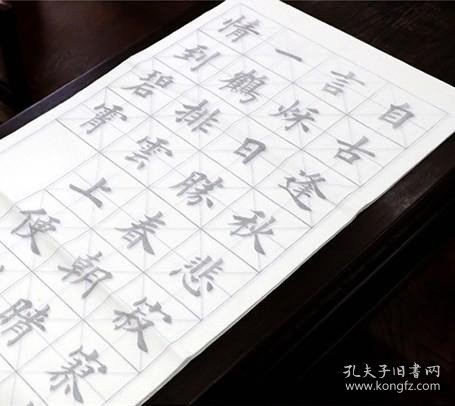 自古逢秋悲寂寥
言秋日勝春朝晴
一鶴排雲上便
情到碧霄
孔夫子旧书网
www.kongfz.com